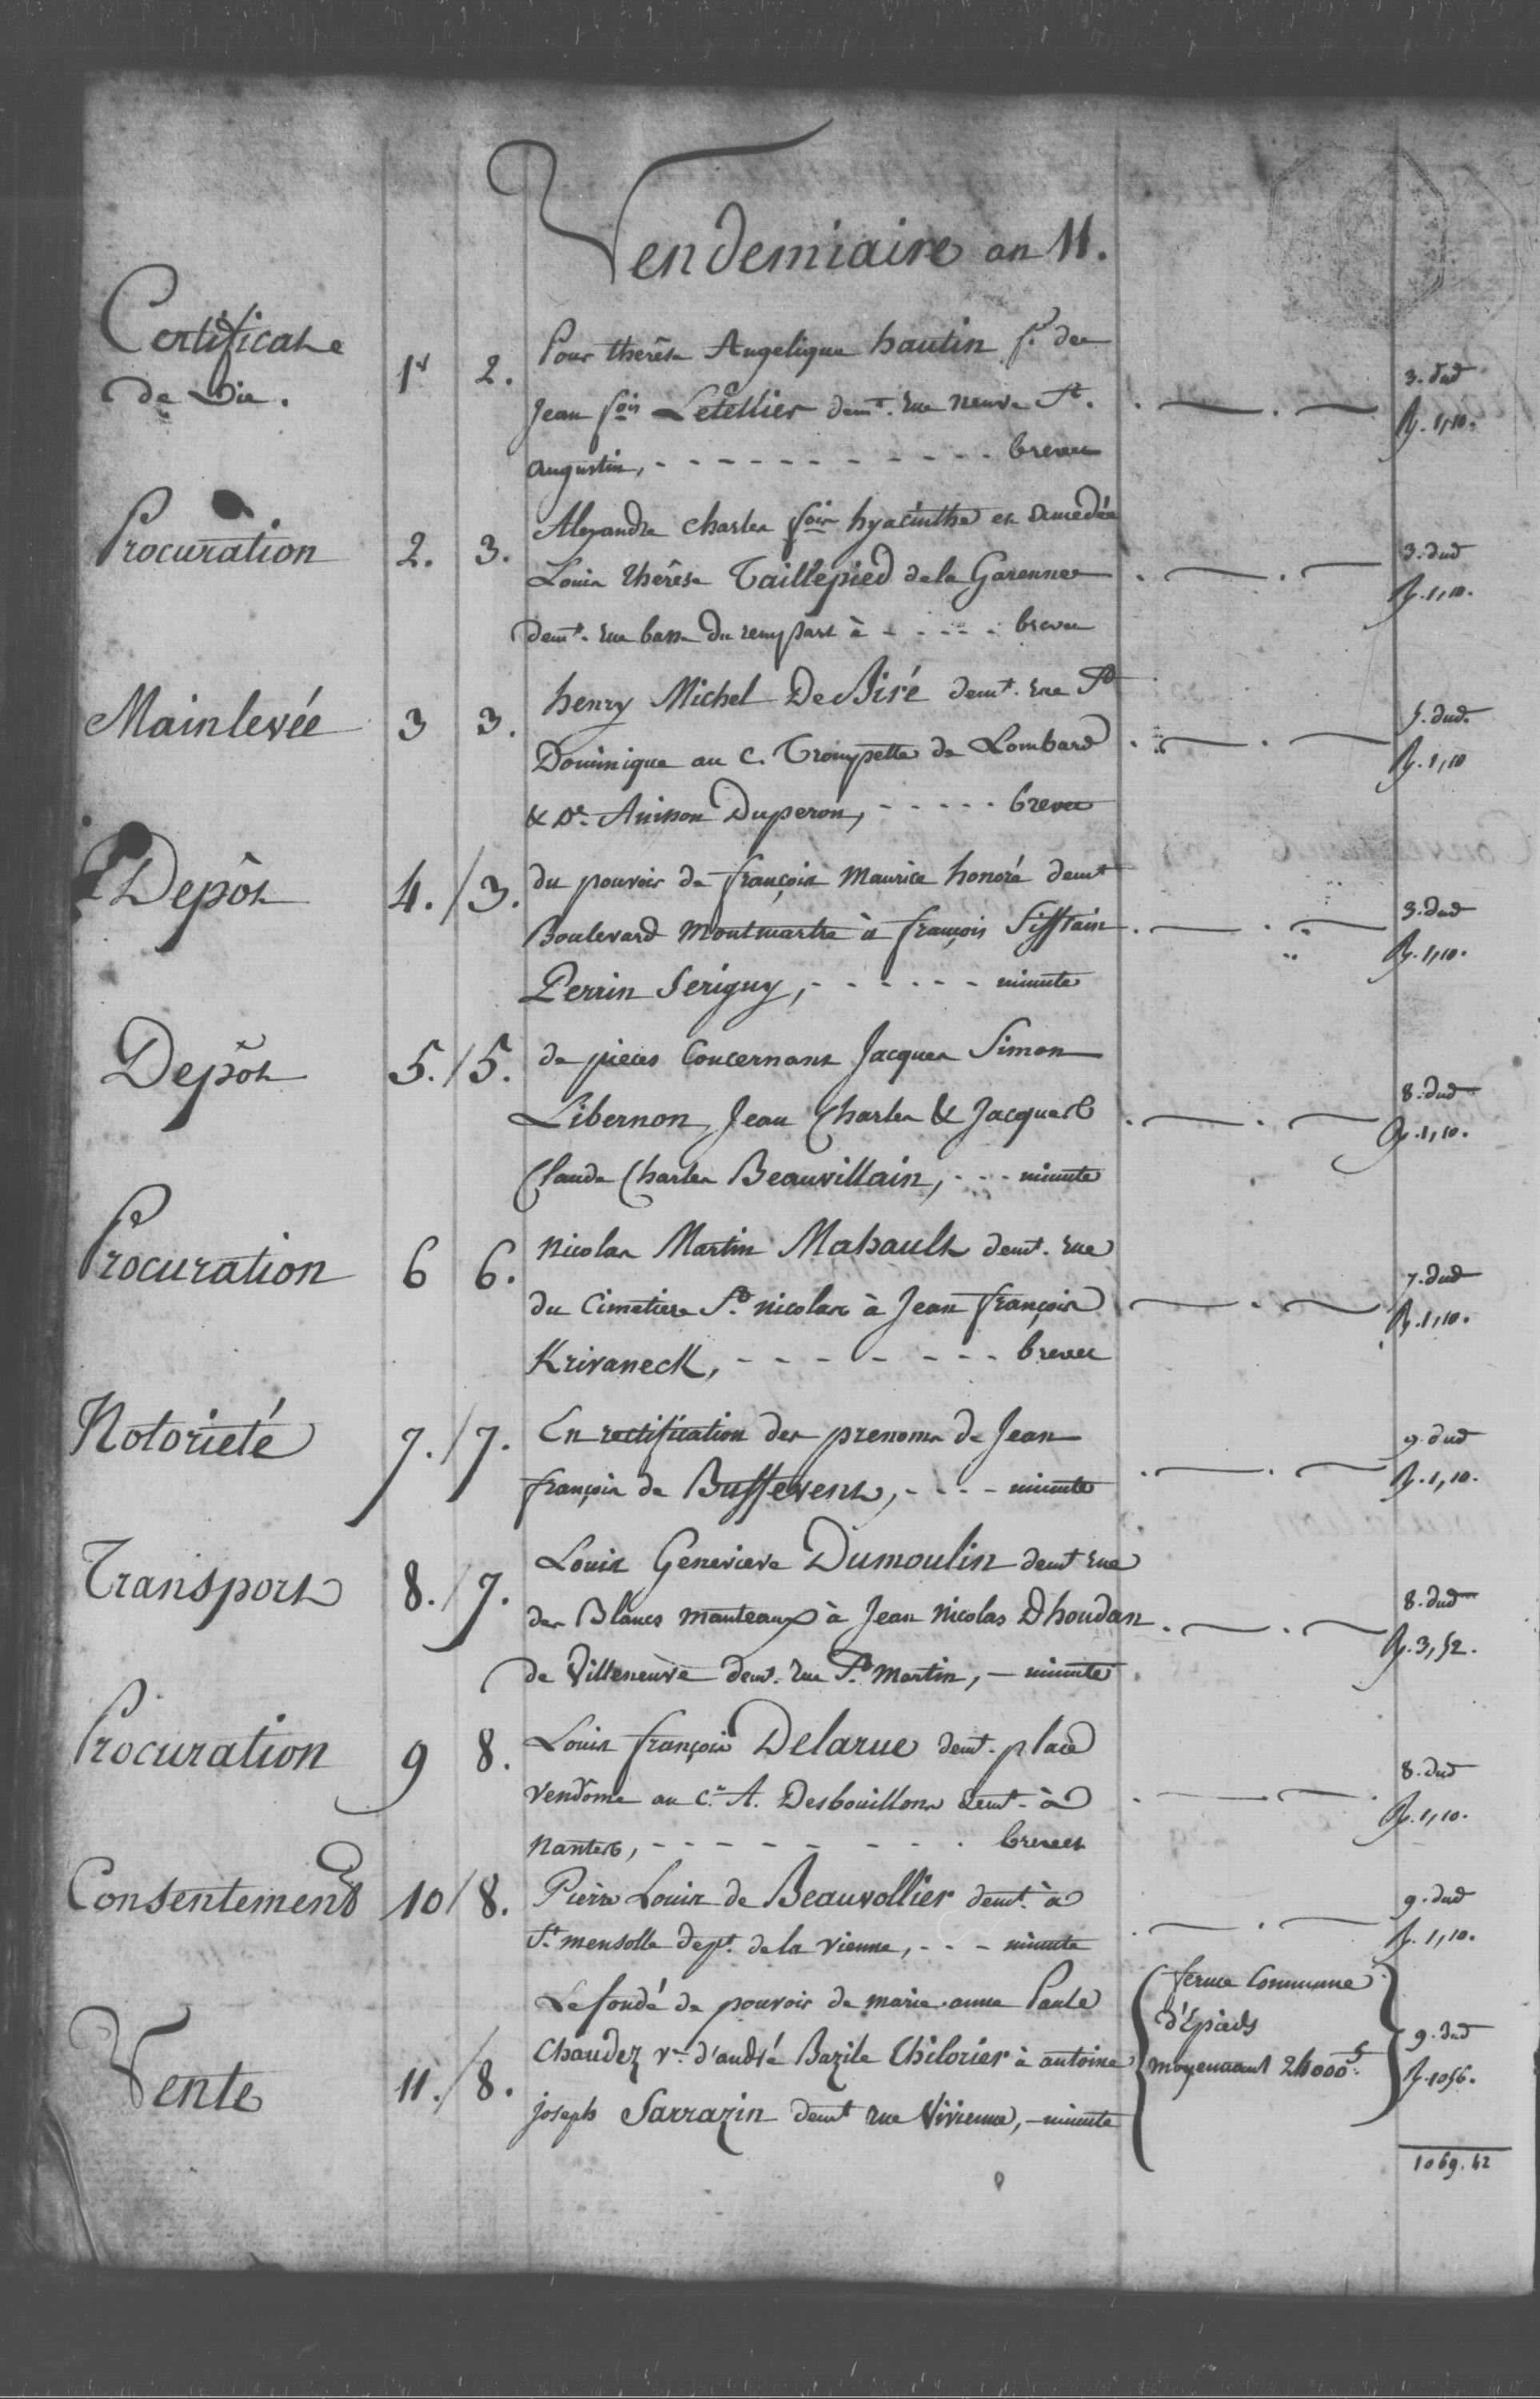 Vendemiaire an 11.
Certificat
de Vie.
1er 2.
Pour therêse Angelique hautin fe. de
Jean fois Letellier demt. rue neuve St.
augustin, - - - - - - - - - - brevet
3. dud
R. 1,10.
Procuration 2. 3.
Alexandre charles fois hyacinthe et Amedée
Louis thérèse Taillepied de la Garenne
demt. rue basse du rempart à - - - - - brevet
3. dud
R. 1,10.
Mainlevée 3 3.
henry Michel De Siré demt. rue St
Dominique au C. Trompette de Lombard
& De. Anisson Duperon, - - - - - brevet
5. dud.
R. 1,10
Depôt 4. / 3.
du pouvoir de françois Maurice honoré demt
Boulevard Montmartre à françois Sifflain
Perrin Serigny, - - - - - - minute
3. dud
R. 1,10.
Depôt 5. / 5.
de pieces Concernant Jacques Simon
Libernon, Jean Charles & Jacques
Claude Charles Beauvillain, - - - minute
8. dud
R. 1,10.
Procuration 6 6.
Nicolas Martin Mahault demt. rue
du Cimetiere St. nicolas à Jean françois
Krivaneck, - - - - - - - - brevet
7. dud
R. 1,10.
Notorieté 7. / 7.
En rectification des prenoms de Jean
françois de Buffevent, - - - - minute
9. dud
R. 1,10.
Transport 8. / 7.
Louis Genevieve Dumoulin demt rue
des Blancs manteaux à Jean Nicolas Dhoudan
de Villeneuve demt. rue St. Martin, - minute
8. dud
R. 3,52.
Procuration 9 8.
Louis françois Delarue demt. place
Vendôme au C.en A. Desbouillons demt. à
Nantes, - - - - - - - - - brevet
8. dud
R. 1,10.
Consentement 10 / 8.
Pierre Louis de Beauvollier demt. à
St. mensolle dept. de la Vienne, - - - minute
9. dud
R. 1,10.
Vente 11. / 8.
Le fondé de pouvoir de marie anne Paule
Chaudez ve. d'andré Bazile Chilorier à antoine
joseph Sarrazin demt rue Vivienne, - minute
ferme Commune
d'Épieds
moyennant 24000
9. dud
R. 1056.
1069.42